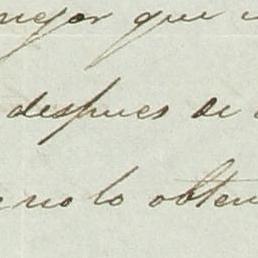 mejor que
despues de
no lo obten